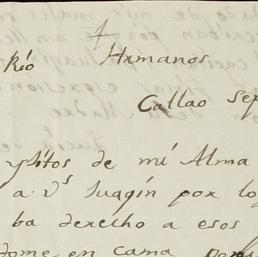 Rio Hrmanos
Callao Sep
ysitos de mi Alma
a. v.s Juaqin por lo
ba derecho a esos
dome en cama